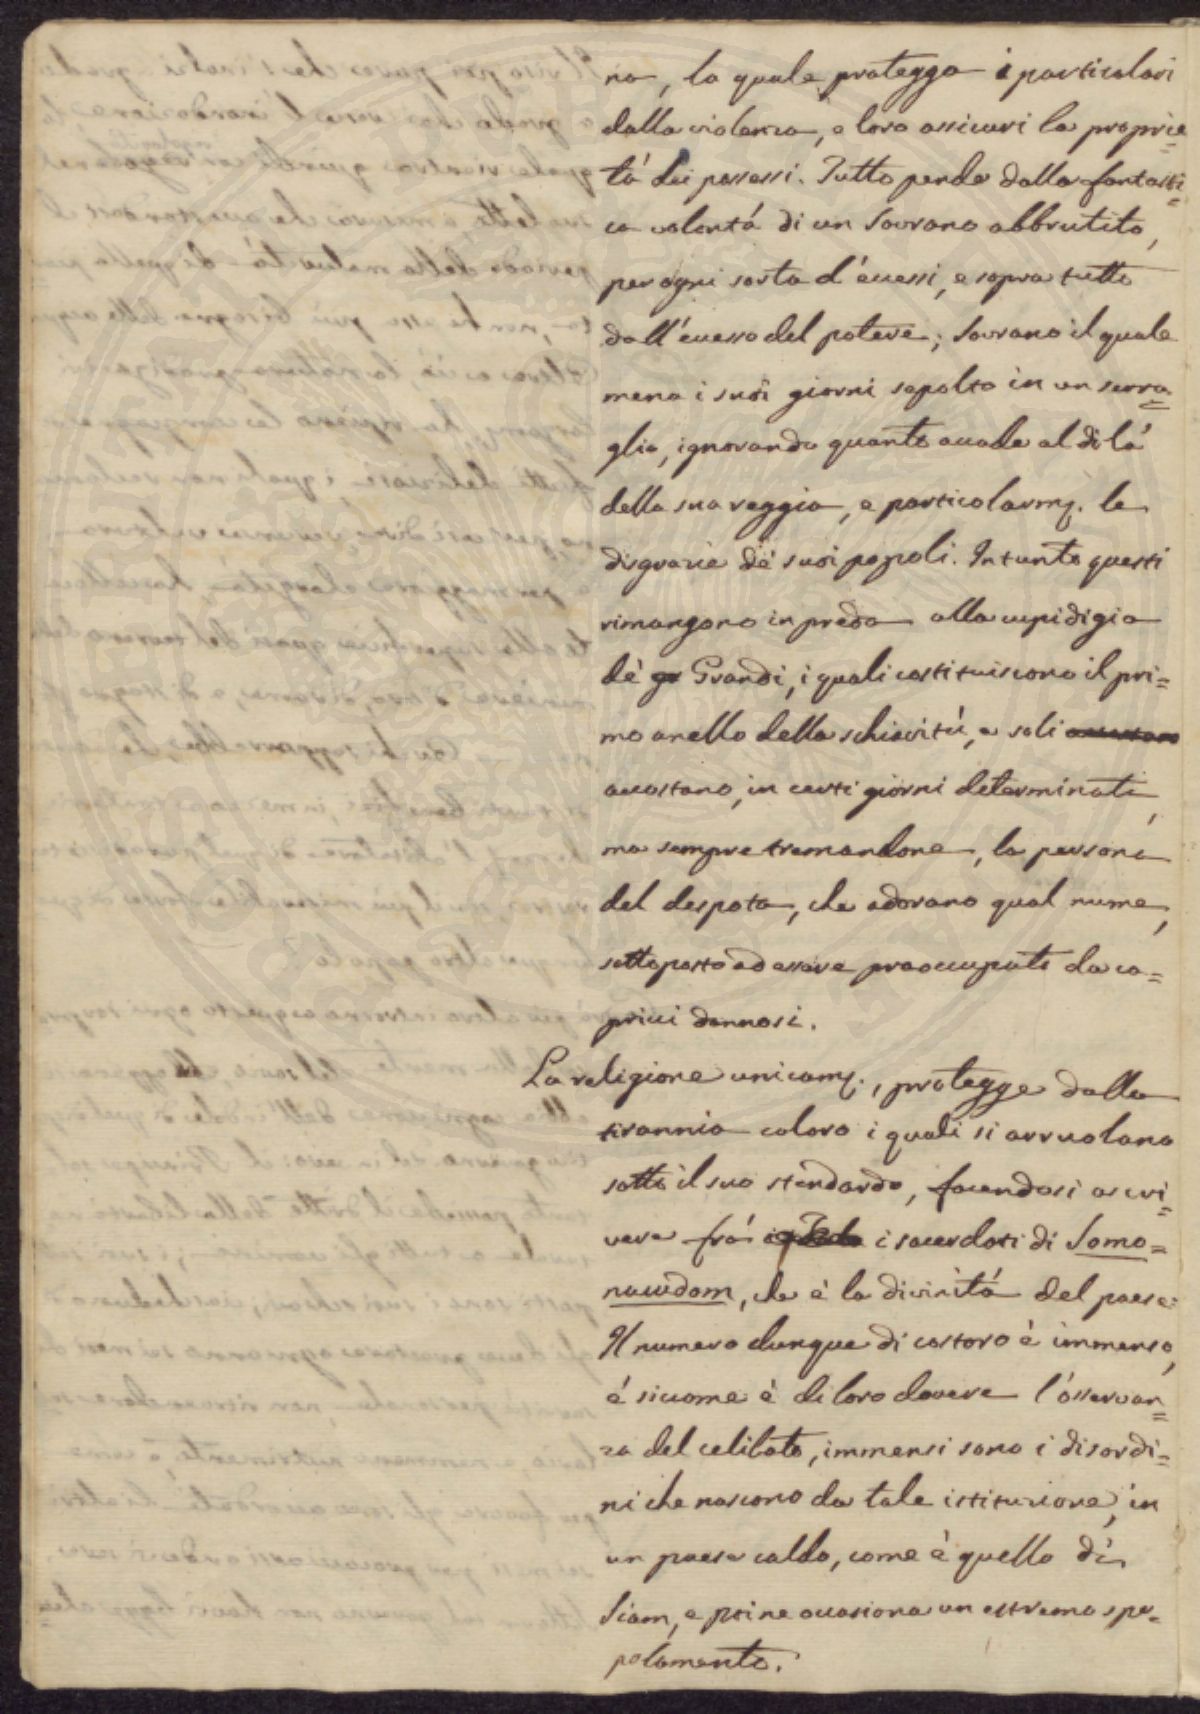 na, la quale protegga i particolari
dalla violenza, e loro assicuri la proprie=
tá dei possessi. Tutto pende dalla fantasti=
ca volontá di un Sovrano abbrutito,
per ogni sorta d'éccessi, e sopra tutto
dall'éccesso del potere; Sovrano il quale
mena i suói giorni sepolto in un serra=
glio, ignorando quanto accade al di lá
della sua reggia, e particolarmẽ. le
disgrazie dé suoi popoli. Intanto questi
rimangono in preda alla cupidigia
dé Grandi, i quali costituiscono il pri=
mo anello della schiavitú, e soli
accostano, in certi giorni determinati,
ma sempre tremandone, la persona
del despota, che adorano qual nume,
sottoposto ad essere preoccupato da ca=
pricci dannosi.
La religione unicamẽ., protegge dalla
tirannia coloro i quali si arruolano
sotto il suo stendardo, facendosi ascri=
vere frá i sacerdoti di Somo=
nacodom, che é la divinitá del paese.
Il numero dunque di costoro é immenso,
é siccome é di loro dovere l'ósservan=
za del celibato, immensi sono i disordi=
ni che nascono da tale istituzione, in
un paese caldo, come é quello di
Siam, e poi ne occasiona un estremo spo=
polamento.